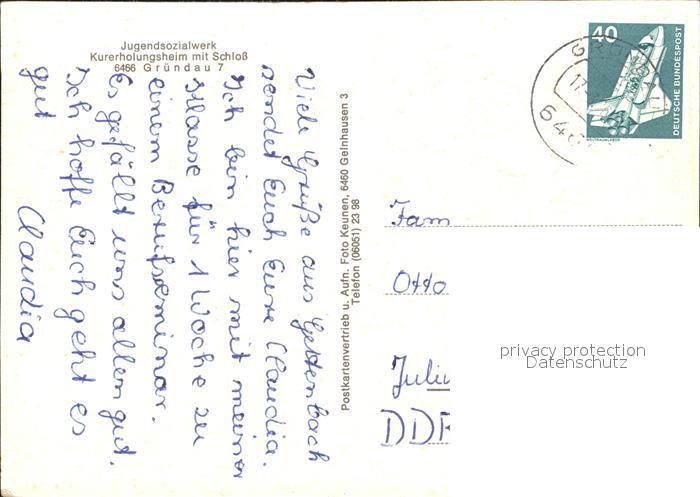 Jugendsozialwerk
Kurerholungsheim mit Schloß
6466 Gründau 7
Viele Grüße aus Gettenbach
sendet Euch Eure Claudia.
Ich bin hier mit meiner
Klasse für 1 Woche zu
einem Berufseminar.
Es gefällt uns allen gut.
Ich hoffe Euch geht es
gut
Claudia
Postkartenvertrieb u. Aufn. Foto Keunen, 6460 Gelnhausen 3
Telefon (06051) 23 98
40
DEUTSCHE BUNDESPOST
WELTRAUMLABOR
Fam
Otto
DDR
privacy protection
Datenschutz